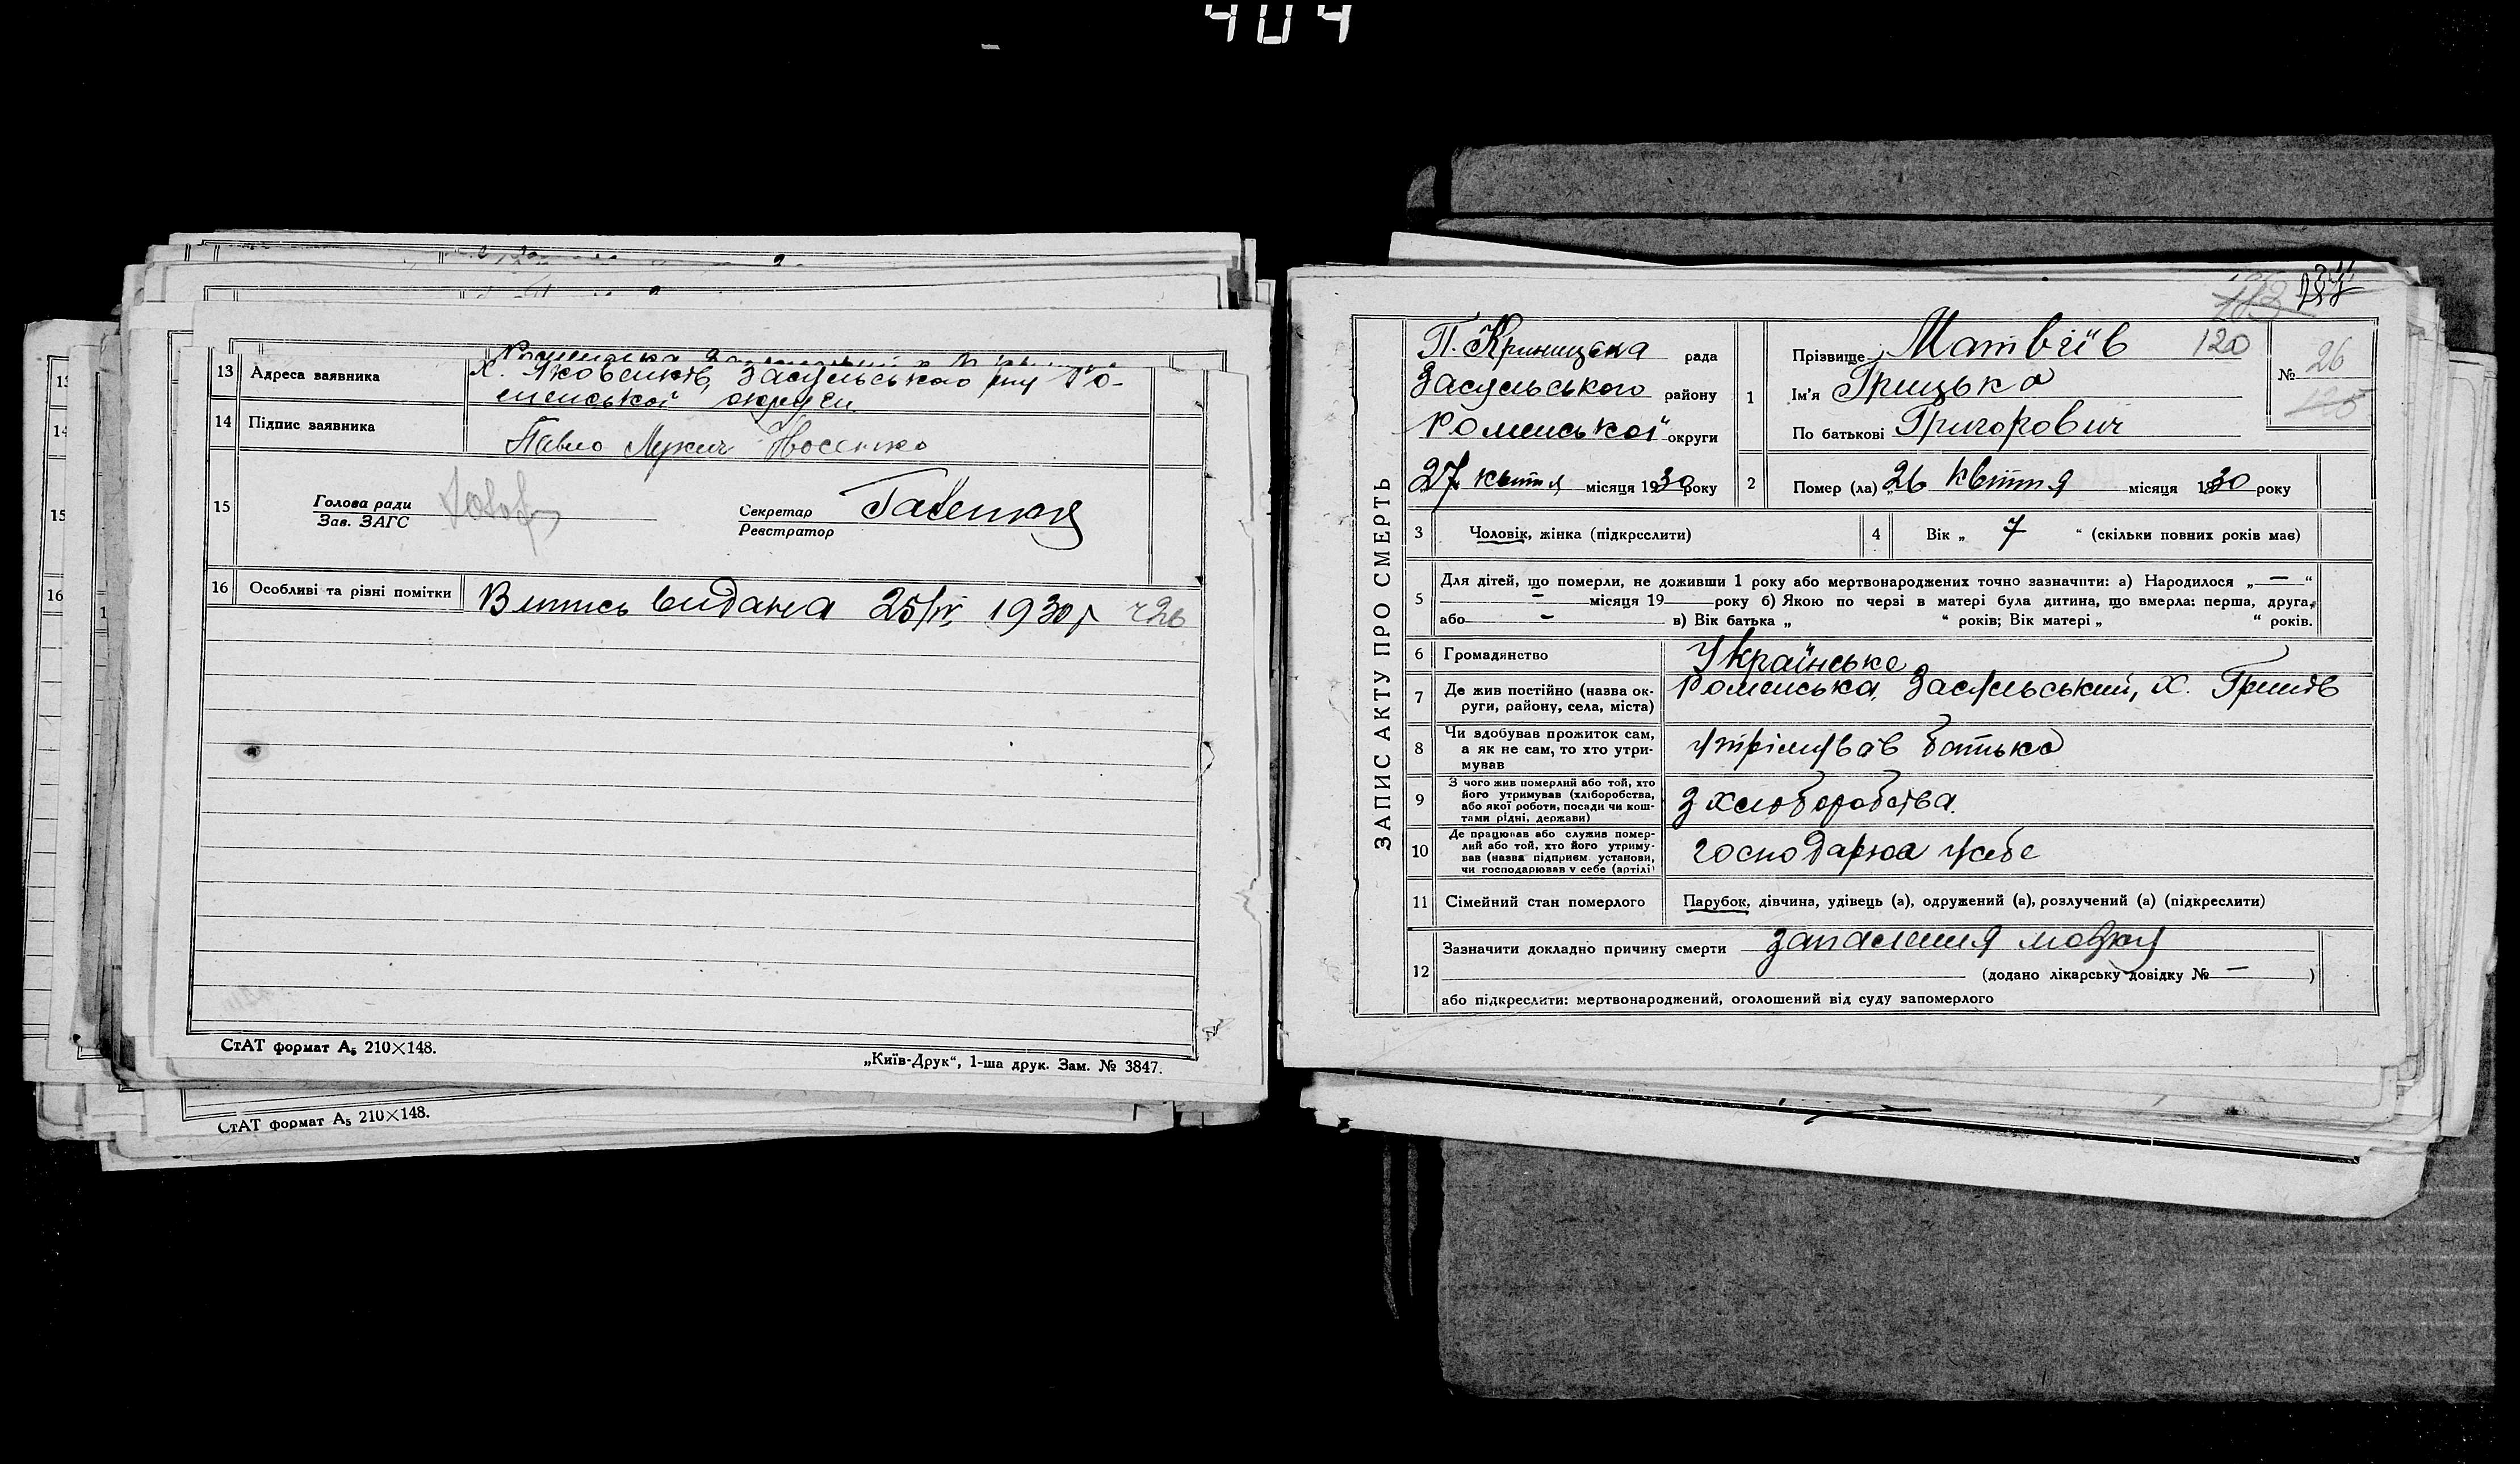 404
13 Адреса заявника х. Яковенків, Засульського р-ну Ро-
менської округи
14 Підпис заявника Павло Лукич Носенко
15 Голова ради
Зав. ЗАГС
Секретар
Реєстратор
16 Особливі та різні помітки Витись видана 25/IV, 1930 р ч 26
СтАТ формат А₅ 210×148.
„Київ-Друк“, 1-ша друк. Зам. № 3847.
СтАТ формат А₅ 210×148.
ЗАПИС АКТУ ПРО СМЕРТЬ
П. Криницька рада
Засульського району
Роменської округи
27 квітня місяця 1930 року
1 Прізвище Матвіїв 120
Ім'я Грицько
По батькові Григорович
№ 26
2 Помер (ла) „26 квітня місяця 1930 року
3 Чоловік, жінка (підкреслити)
4 Вік „ 7 “ (скільки повних років має)
5 Для дітей, що померли, не доживши 1 року або мертвонароджених точно зазначити: а) Народилося „ — “
— місяця 19 року б) Якою по черзі в матері була дитина, що вмерла: перша, друга,
або - в) Вік батька „ “ років; Вік матері „ “ років.
6 Громадянство Українське
7 Де жив постійно (назва ок-
руги, району, села, міста) Роменська, Засульський, х.
8 Чи здобував прожиток сам,
а як не сам, то хто утри-
мував утрімував батько
9 З чого жив померлий або той, хто
його утримував (хліборобства,
або якої роботи, посади чи кош-
тами рідні, держави) З хліборобства.
10 Де працював або служив помер-
лий або той, хто його утриму-
вав (назва підприєм. установи,
чи господарював у себе (артілі) господарює усебе
11 Сімейний стан померлого Парубок, дівчина, удівець (а), одружений (а), розлучений (а) (підкреслити)
12 Зазначити докладно причину смерти запалення мозку
(додано лікарську довідку № — )
або підкреслити: мертвонароджений, оголошений від суду запомерлого